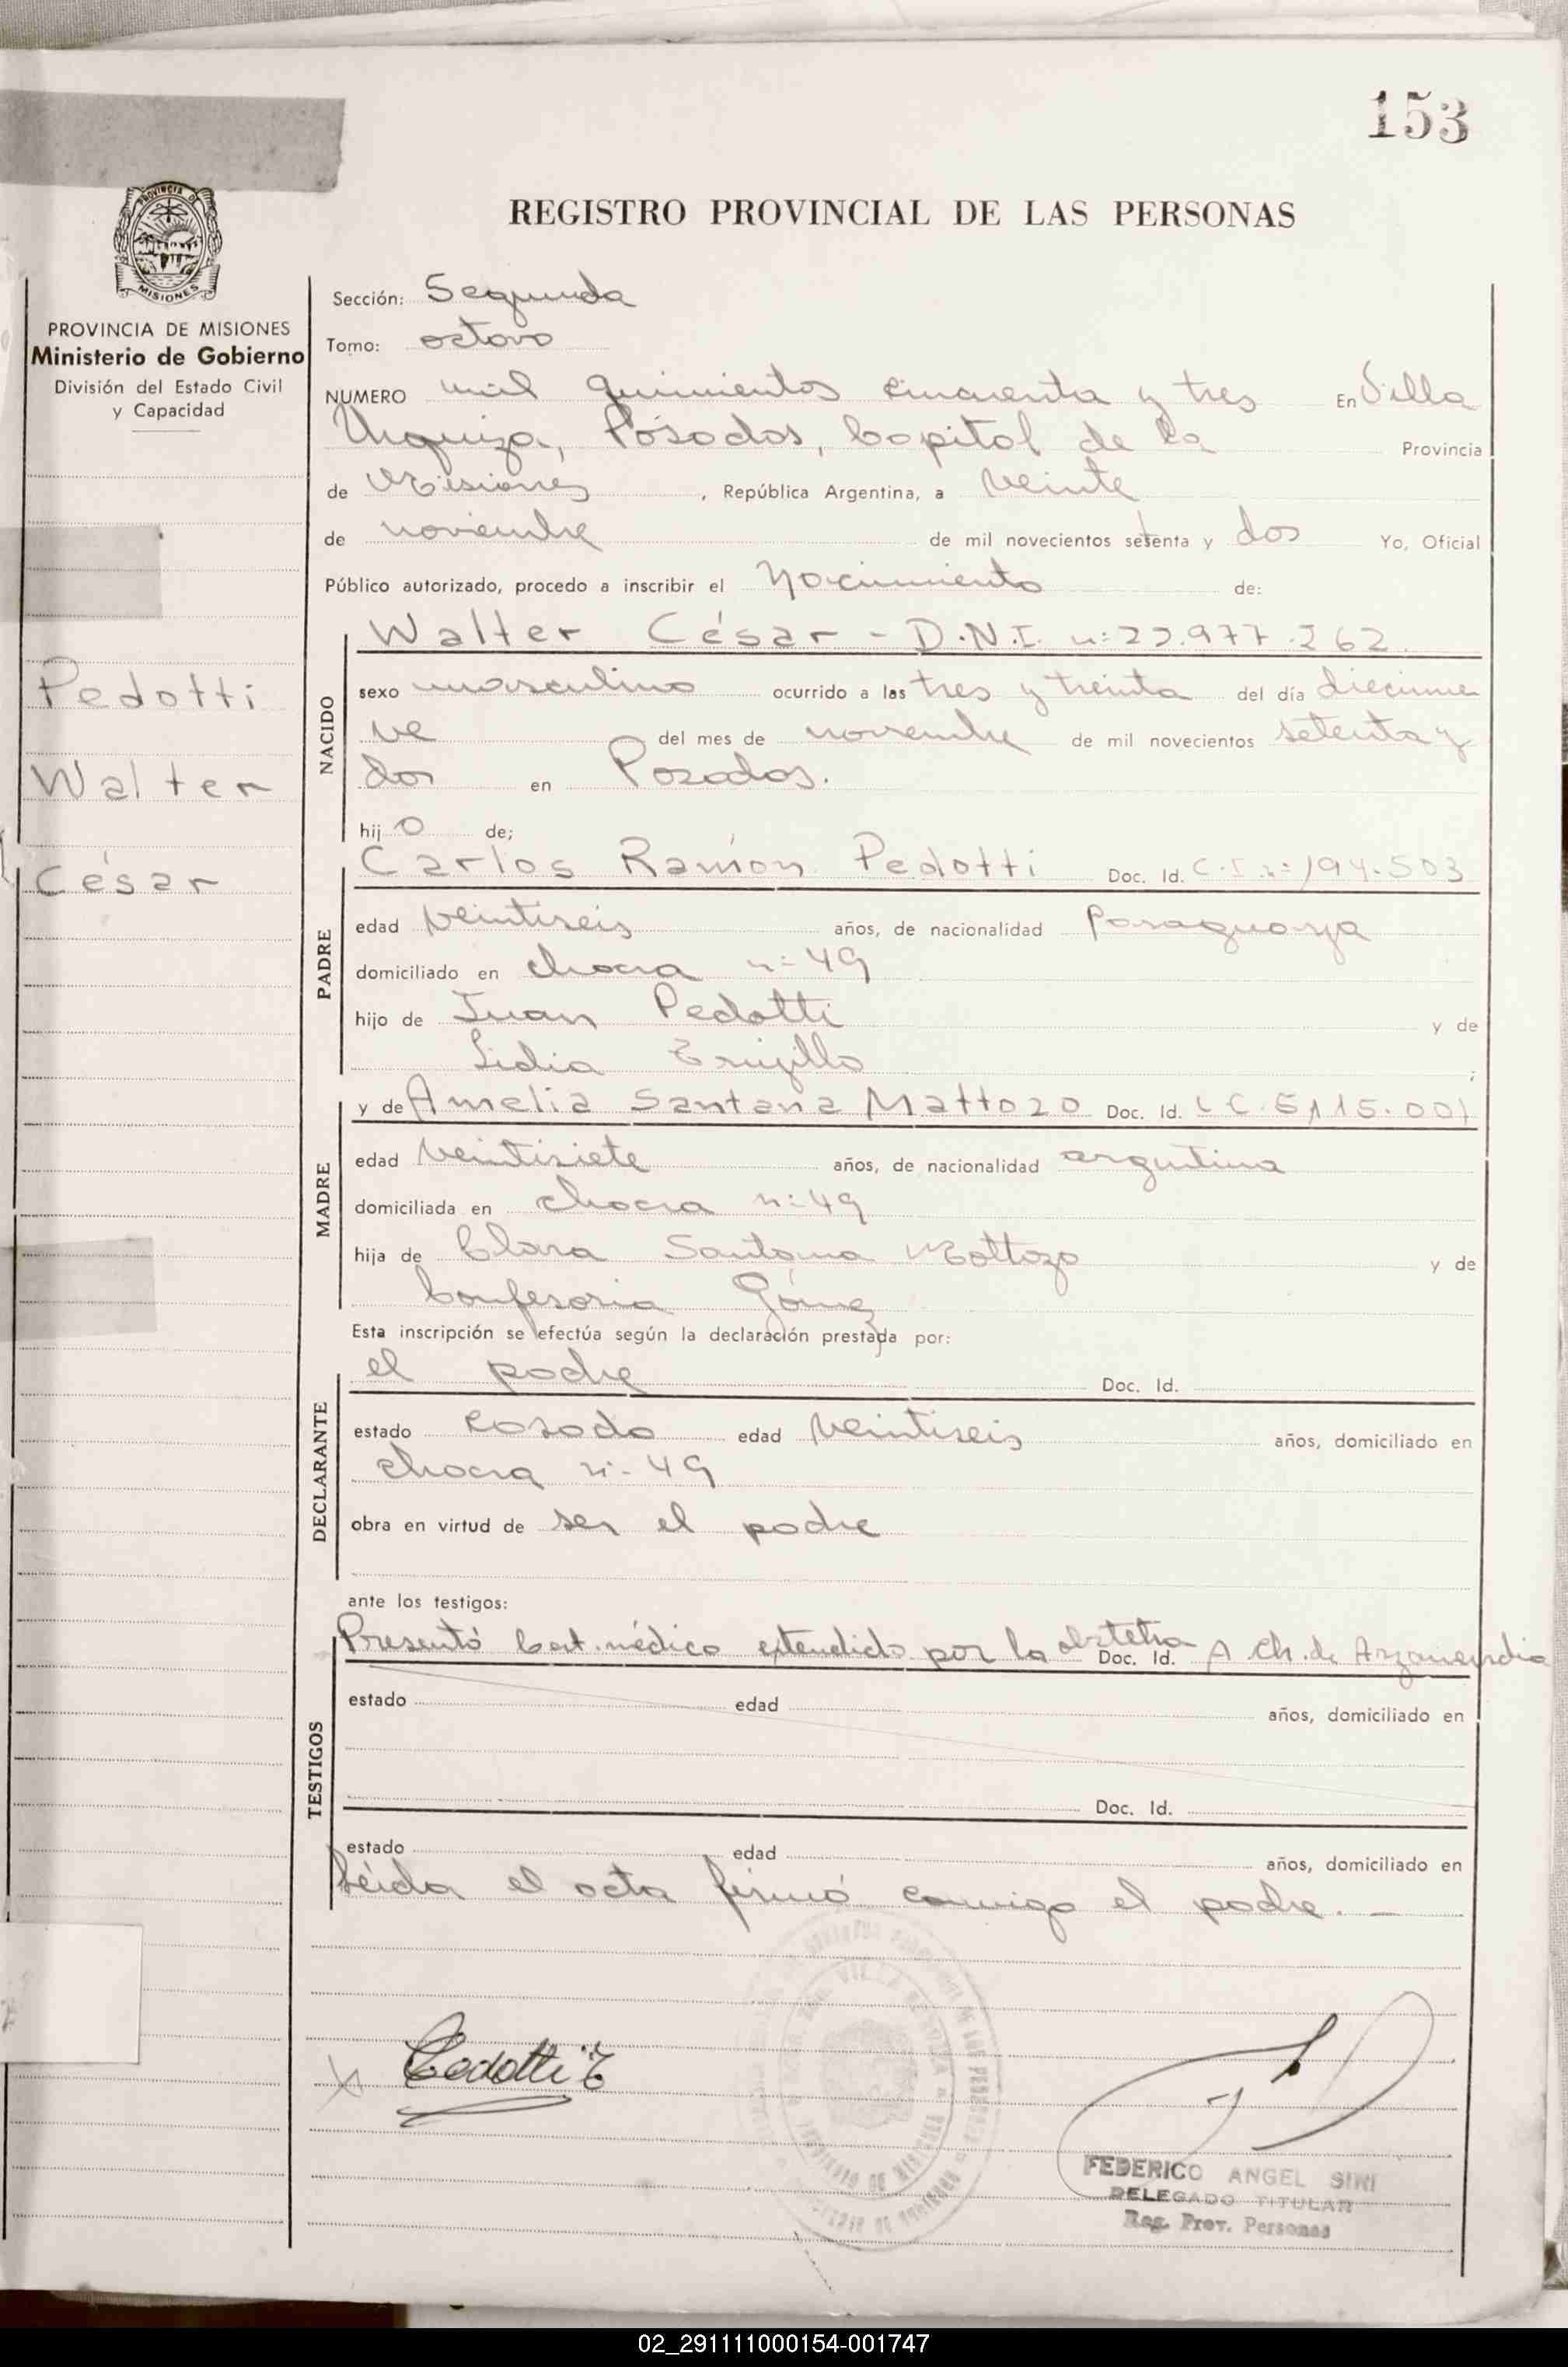 153
REGISTRO PROVINCIAL DE LAS PERSONAS
PROVINCIA DE MISIONES
PROVINCIA DE MISIONES
Ministerio de Gobierno
División del Estado Civil
y Capacidad
Pedotti
Walter
César
Sección: Segunda
Tomo: octavo
NUMERO mil quinientos cincuenta y tres En Villa
Urquiza, Posadas, Capital de la Provincia
de Misiones, República Argentina, a veinte
de noviembre de mil novecientos setenta y dos Yo, Oficial
Público autorizado, procedo a inscribir el Nacimiento de:
NACIDO
Walter César - D.N.I. n:
sexo masculino ocurrido a las tres y treinta del día diecinue
ve del mes de noviembre de mil novecientos setenta y
dos en Posadas.
hijo de;
PADRE
Carlos Ramón Pedotti Doc. Id. C.I. n: 194.503
edad veintiseis años, de nacionalidad paraguaya
domiciliado en chacra n: 49
hijo de Juan Pedotti y de
Lidia Trujillo ;
MADRE
y de Amelia Santana Mattozo Doc. Id. L C. 5115.001
edad veintisiete años, de nacionalidad argentina
domiciliada en chacra n: 49
hija de Clara Santana Mattozo y de
Confesoria Gómez
Esta inscripción se efectúa según la declaración prestada por:
DECLARANTE
el padre Doc. Id.
estado casado edad veintiseis años, domiciliado en
chacra n- 49
obra en virtud de ser el padre
ante los testigos:
TESTIGOS
Presentó Cert. médico extendido por la obstetra Doc. Id. A Ch. de Arzamendia
estado edad años, domiciliado en
Doc. Id.
estado edad años, domiciliado en
Leída el acta firmó conmigo el padre. -
Pedotti
FEDERICO ANGEL SIRI
DELEGADO TITULAR
Reg. Prov. Personas
02_291111000154-001747